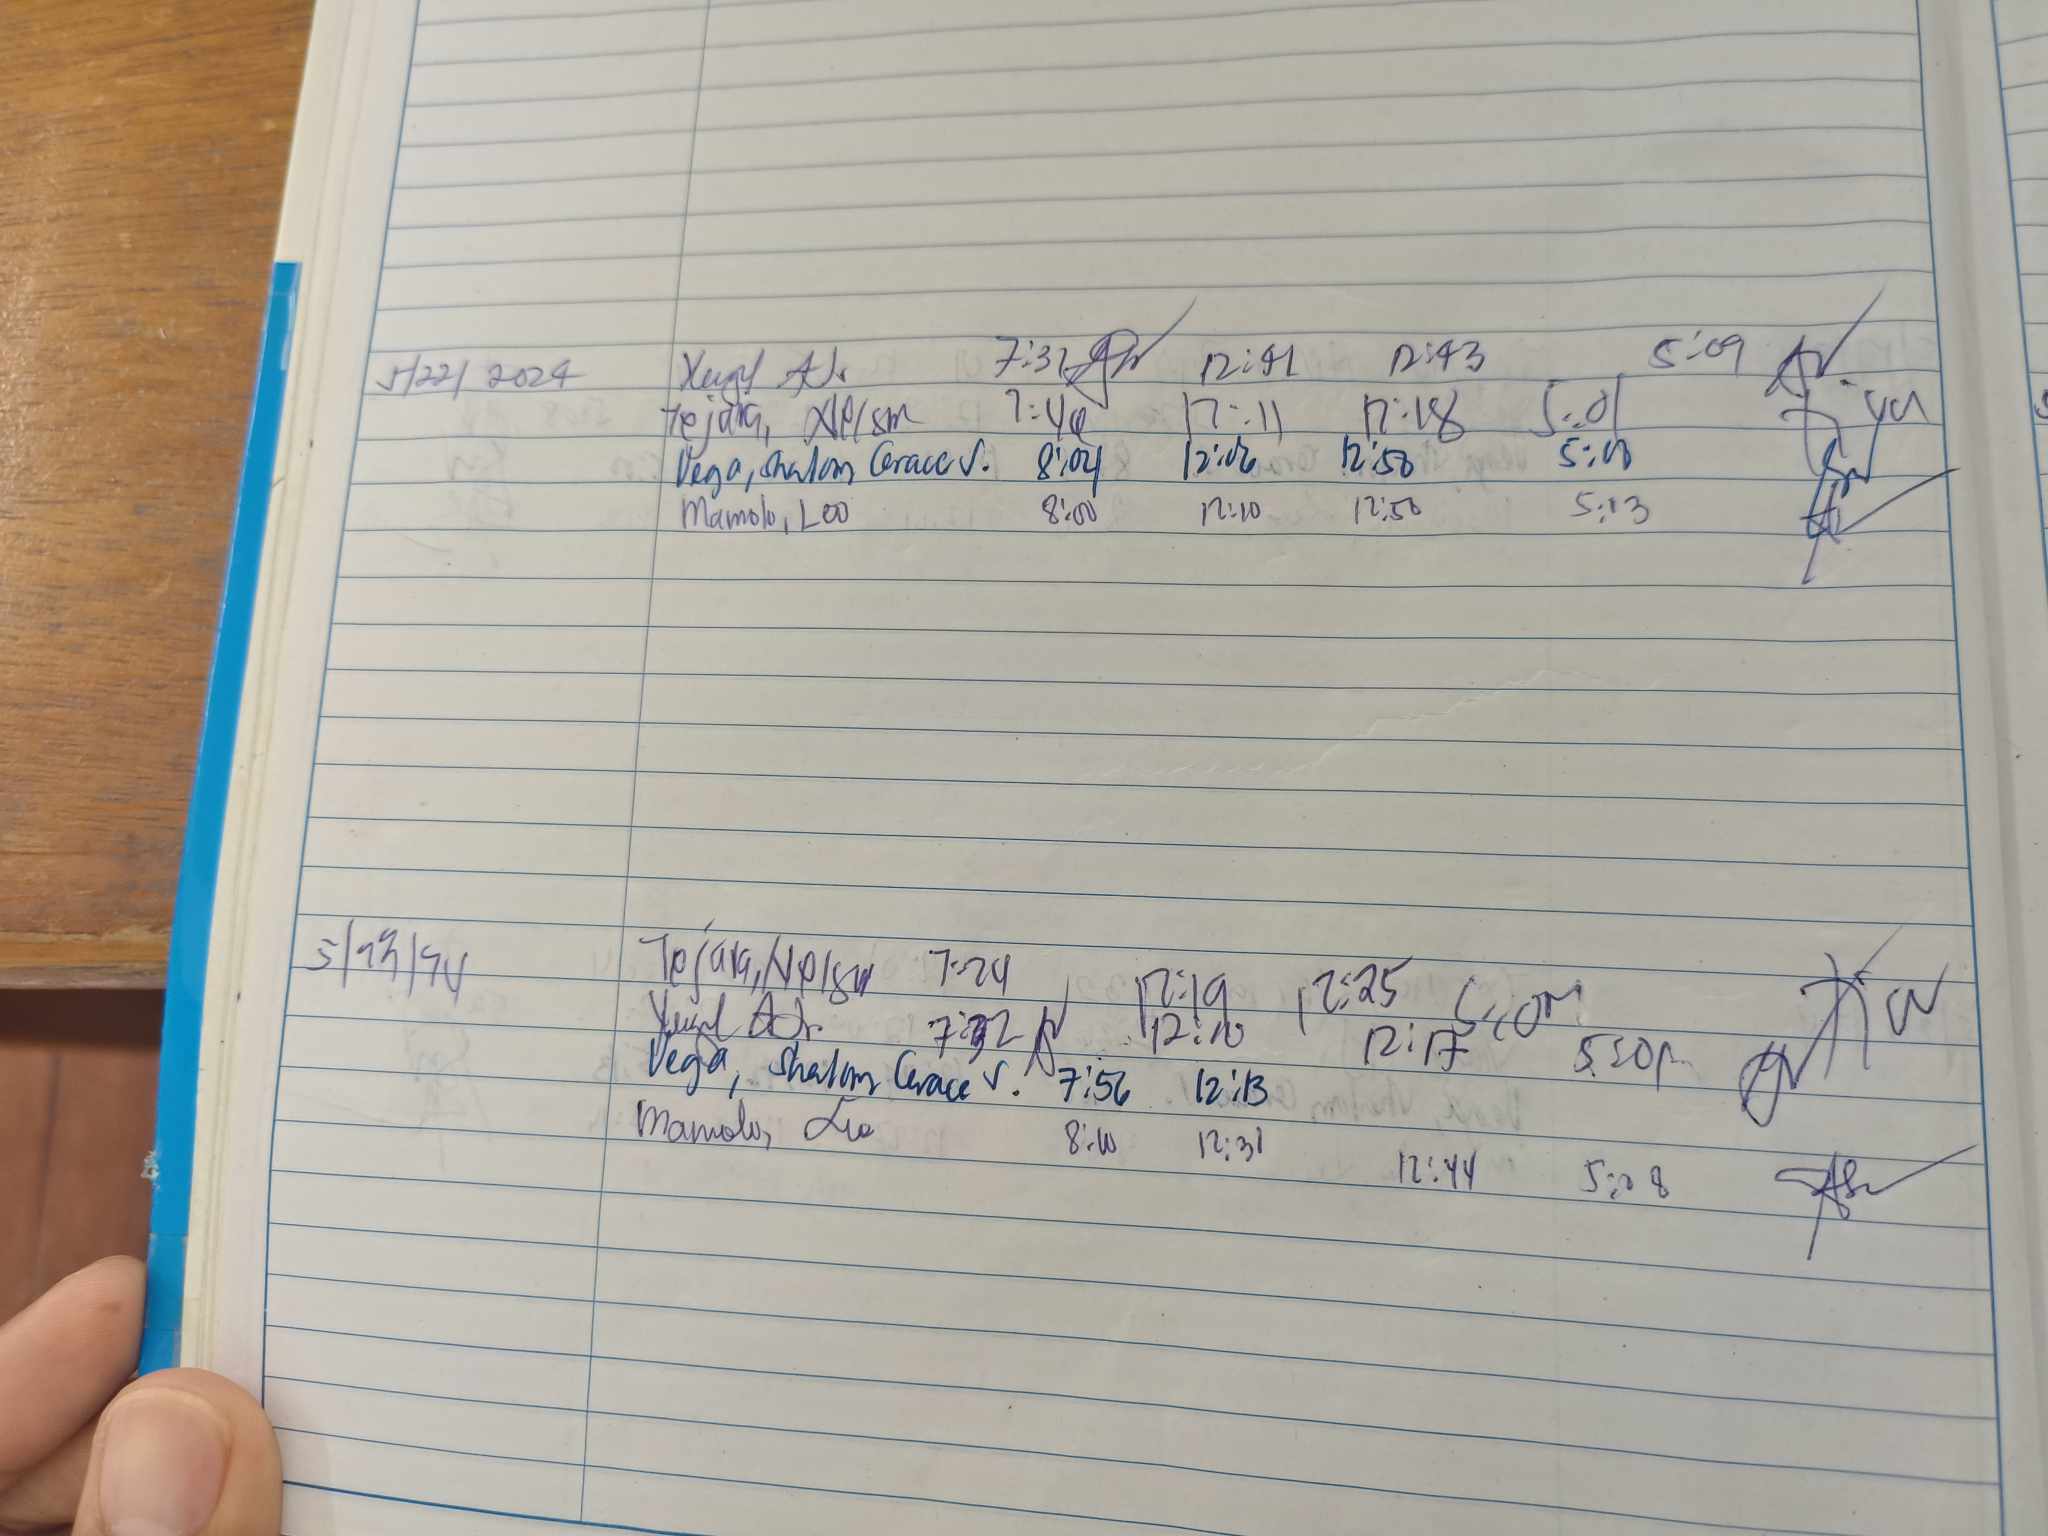 5/22/2024 7:32 12:41 12:43 5:09
Tejara, 7:44 12:11 12:18 5:01
Vega, Shalom Grace V. 8:04 12:06 12:50 5:10
Mamolo, Leo 8:00 12:10 12:50 5:13
5/23/24 Tejara, 7:24 12:19 12:25
7:32 12:10 12:17
Vega, Shalom Grace V. 7:56 12:13
Mamolo, Leo 8:10 12:31 12:44 5:08